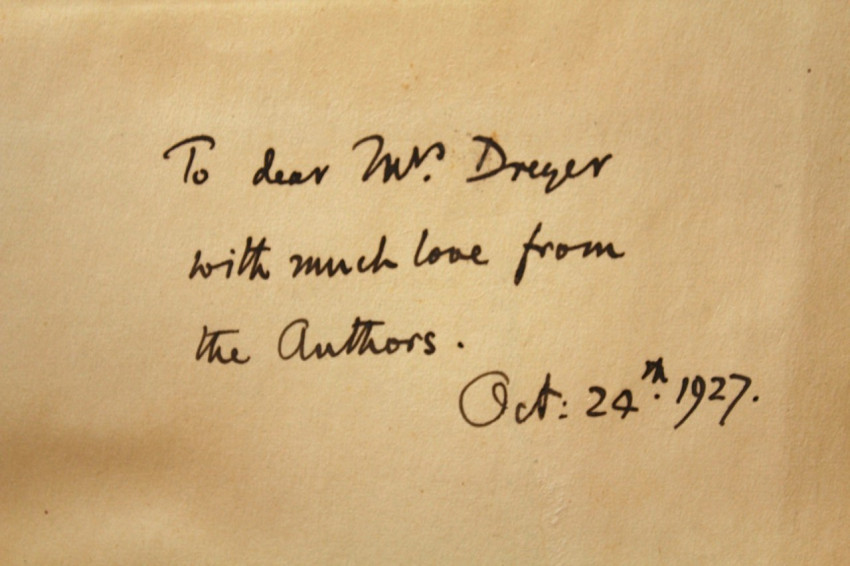 To dear Mrs. Dreyer
with much love from
the Authors.
Oct: 24th. 1927.